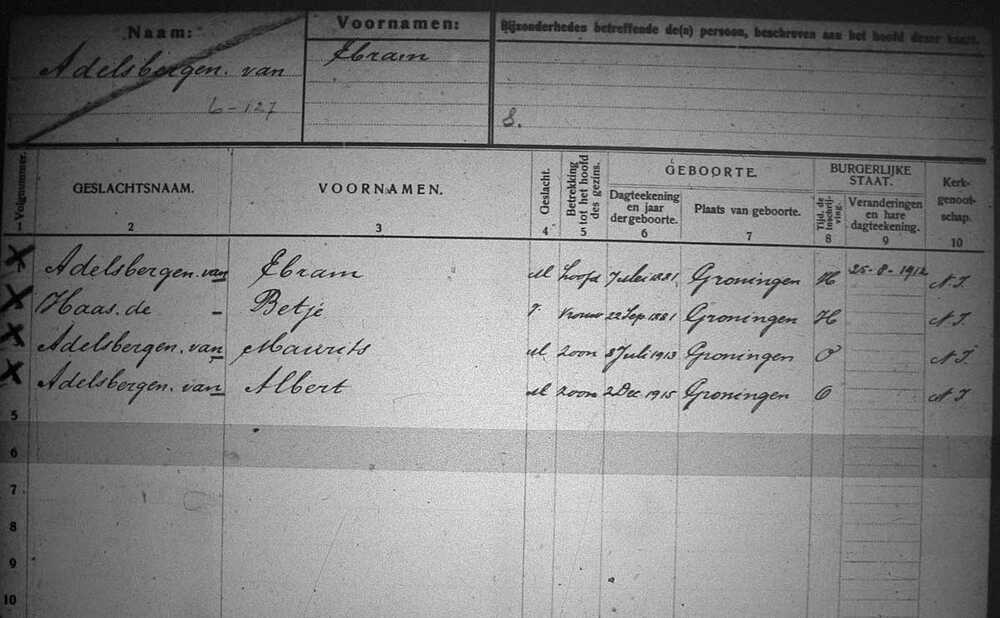 Naam:
Voornamen:
Bijzonderheden betreffende de(n) persoon, beschreven aan het hoofd dezer kaart.
Adelsbergen. van
Ebram
6-127
8.
Volgnummer.
GESLACHTSNAAM.
VOORNAMEN.
Geslacht.
Betrekking tot het hoofd des gezins.
GEBOORTE.
BURGERLIJKE STAAT.
Kerk-genoot-schap.
Dagteekening en jaar der geboorte.
Plaats van geboorte.
Tijd. de inschrij-ving.
Veranderingen en hare dagteekening.
1 2 3 4 5 6 7 8 9 10
Adelsbergen. van Ebram M hoofd 7 Juli 1881 Groningen H 25-8-1912 N.I.
Haas. de - Betje V. vrouw 22 Sep. 1881 Groningen H N.I.
Adelsbergen. van Maurits M. zoon 8 Juli 1913 Groningen O N.I.
Adelsbergen. van Albert M zoon 2 Dec. 1915 Groningen O N.I
5
6
7
8
9
10